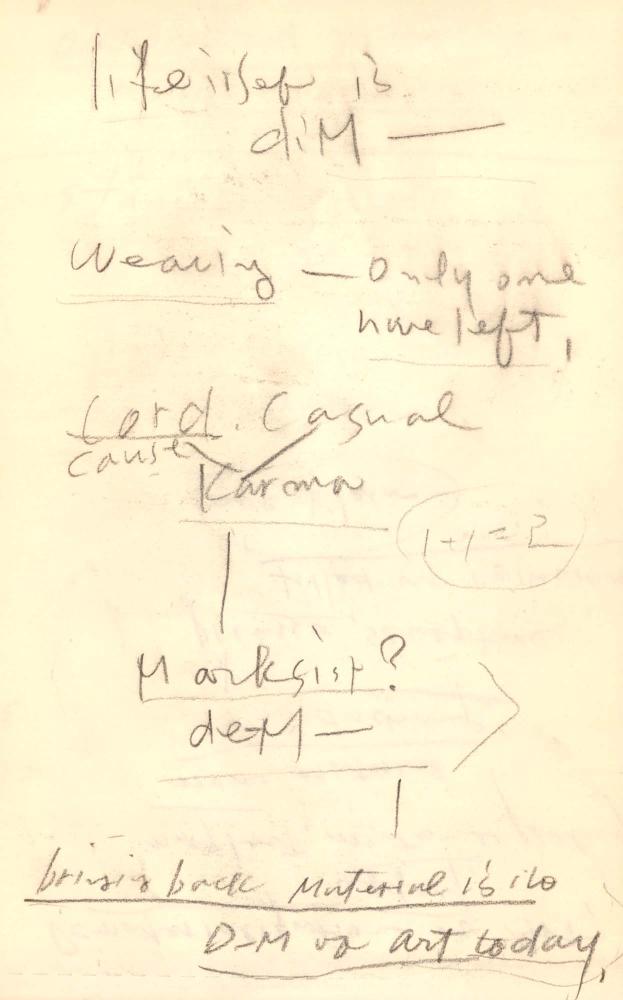 life itself is
diM —
Weaving — Only one
have left,
Cord. Casual
cause
Karma
1+1=2
Marksist?
de-M —
back Material is
D-M art today,